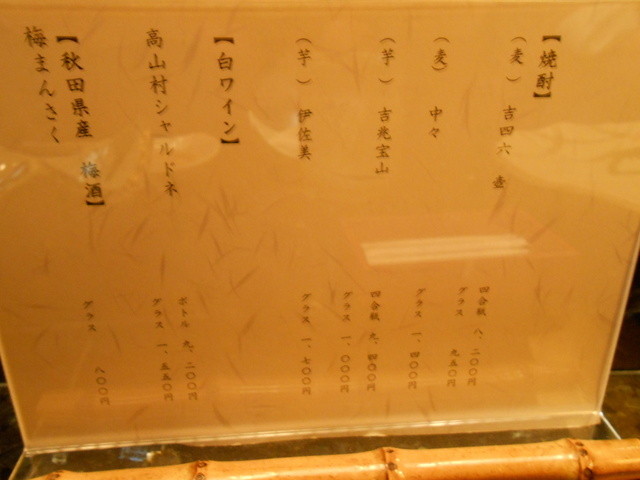 【焼酎】
（麦）　吉四六　壺
四合瓶　八、二〇〇円
グラス　九五〇円
（麦）　中々
グラス　一、四〇〇円
（芋）　吉兆宝山
四合瓶　九、四〇〇円
グラス　一、〇〇〇円
（芋）　伊佐美
グラス　一、七〇〇円
【白ワイン】
高山村シャルドネ
ボトル　九、二〇〇円
グラス　一、五五〇円
【秋田県産　梅酒】
梅まんさく
グラス　八〇〇円